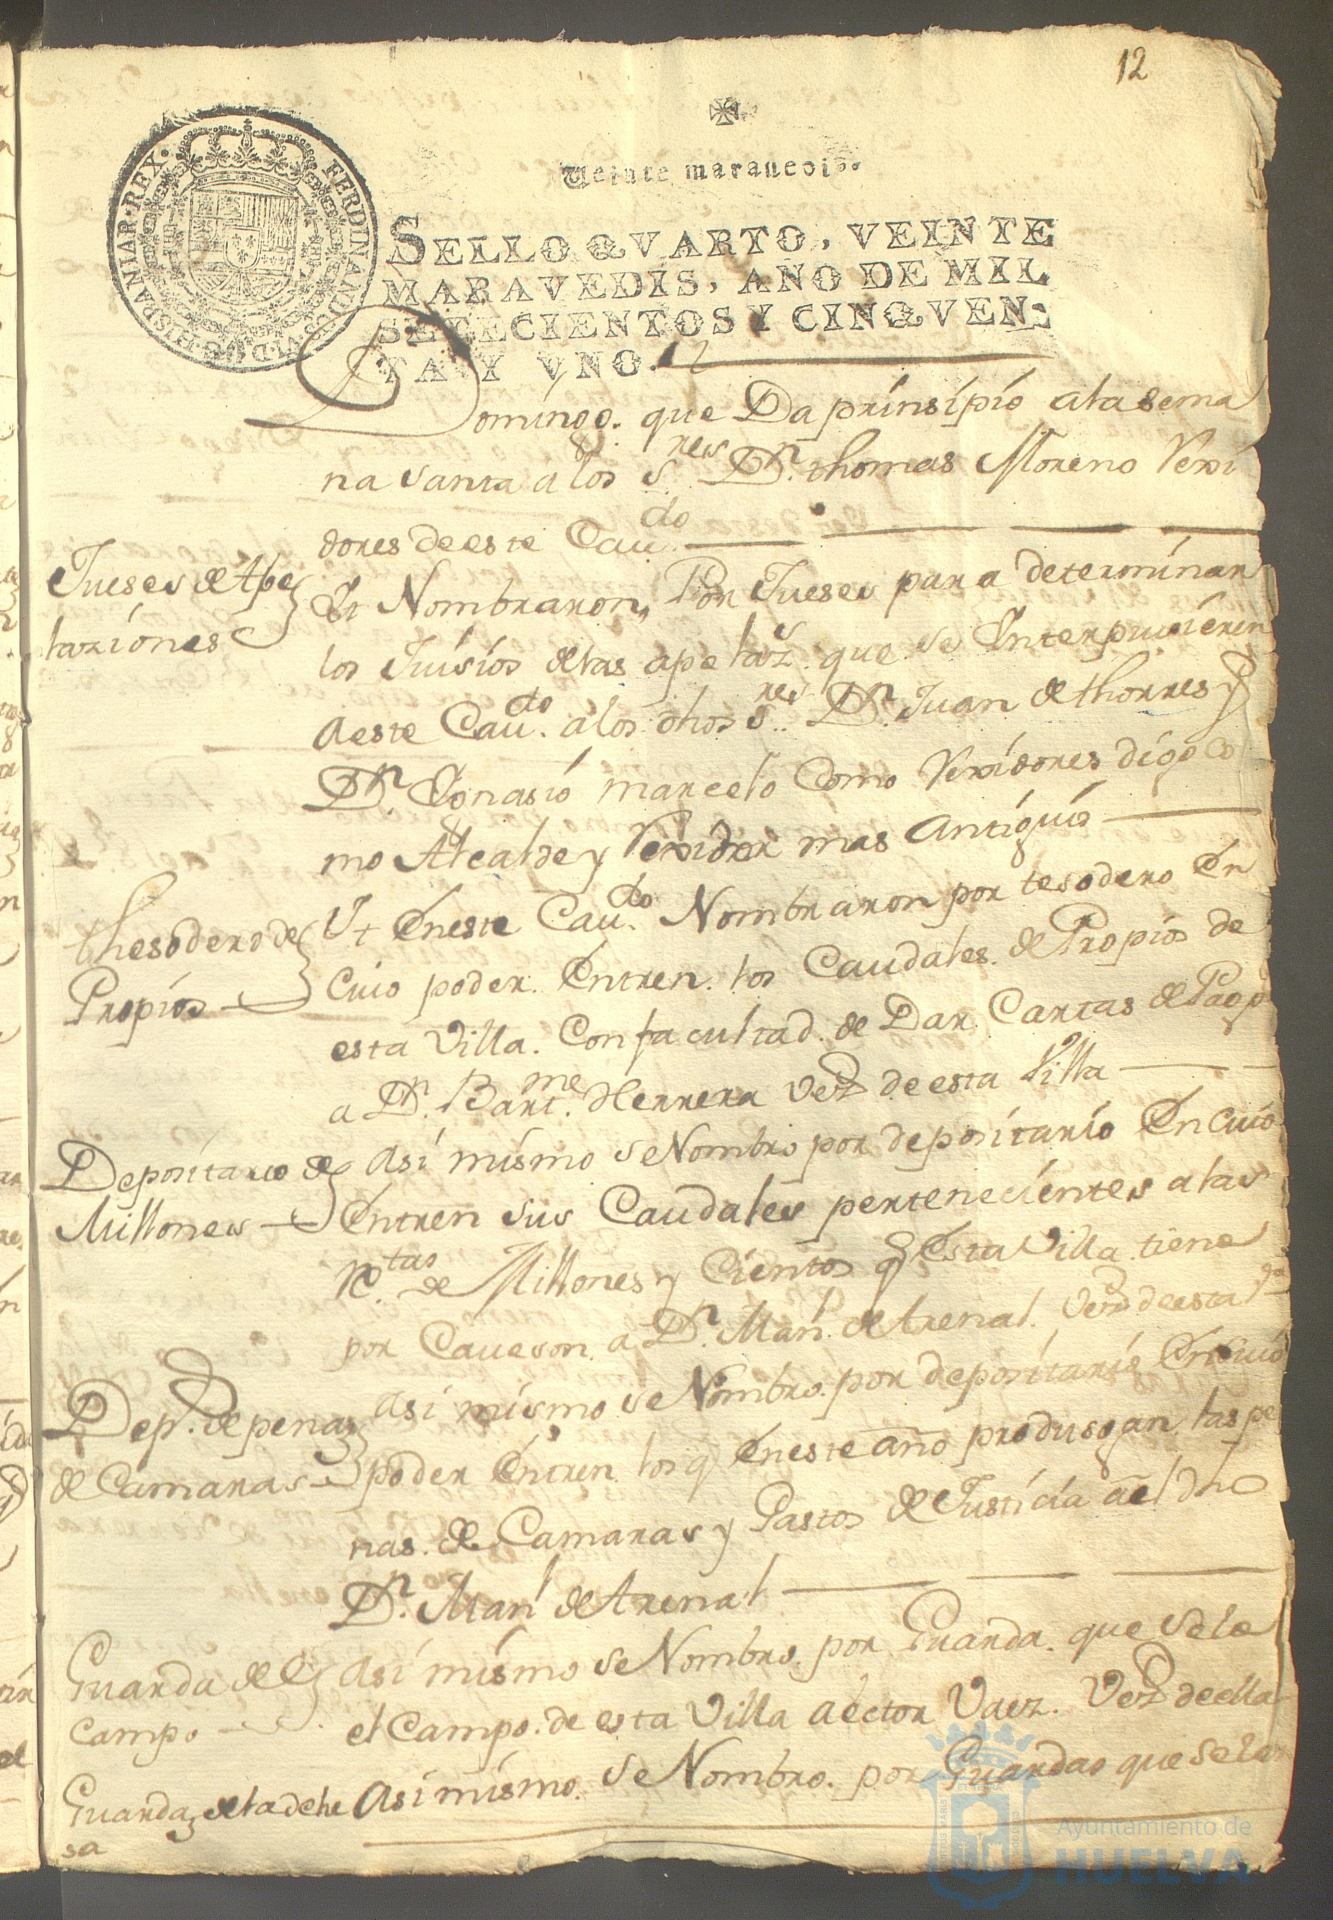 12
Veinte maravedis.
FERDINANDUS.VI.D.G.HISPANIAR.REX.
SELLO QVARTO, VEINTE
MARAVEDIS, AÑO DE MIL
SETECIENTOS Y CINQVEN-
TA Y VNO.
Domingo. que Da prinsipio ala sema
na santa a los S.res Dn. thomas Moreno Rexi
dores de este Cau.do
Jueses de Ape
laziones
Yt Nombraron, Por Jueses para determinar
los Juisios delas apelaz.s que se Interpucieren
a este Cau.do a los dhos S.res Dn. Juan de thorres y
Dn. Ygnasio marcelo Como Rexidores digo co
mo Alcalde y Rexidor mas Antiguo
thesodero de
Propios
Yt En este Cau.do Nombraron por tesodero En
Cuio poder. Entren. los Caudales. de Propios de
esta Villa. Con facultad. de Dar. Cartas de Pago
a Dn. Bart.me Herrera Vez.o de esta Villa
Depositario de
Millones
Asi mismo se Nombro por depositario En cuio
Entren sus Caudales pertenecientes a las
R.tas de Millones y Cientos q Esta Villa tiene
por Caueson. a Dn. Man.l de Arenal. Vez.o de esta
Dep.o de penas
de Camaras
Asi mismo. se Nombro. por depositario En cuio
poder Entren los q En este año produsgan las pe
nas. de Camaras y Gastos de Justicia a el dho
Dn. Man.l de Arenal
Guarda de el
campo
Asi mismo se Nombro. por Guarda. que sele
el Campo. de esta Villa a ector Vaez. Vez.o de ella
Guarda de la dehe
sa
Asi mismo. se Nombro. por Guardao que sele
Ayuntamiento de
HUELVA